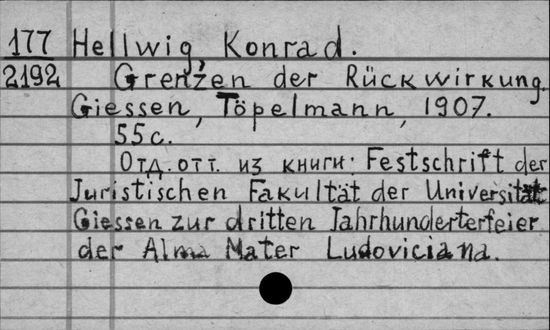 177 Hellwig, Konrad.
2192 Grenzen der Rückwirkung.
Giessen, Töpelmann, 1907.
55 с.
Отд. отт. из книги: Festschrift der
Juristischen Fakultät der Universität
Giessen zur dritten Jahrhunderterfeier
der Alma Mater Ludoviciana.